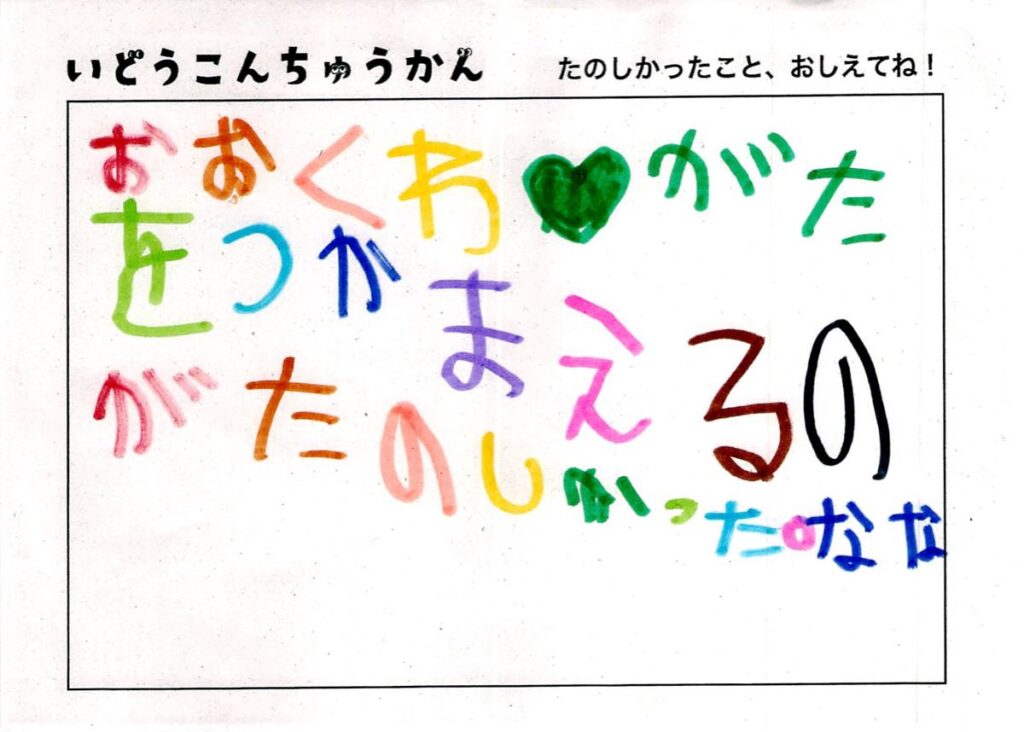 いどうこんちゅうかん
たのしかったこと、おしえてね！
おおくわ♥がた
をつかまえるの
がたのしかった
なな